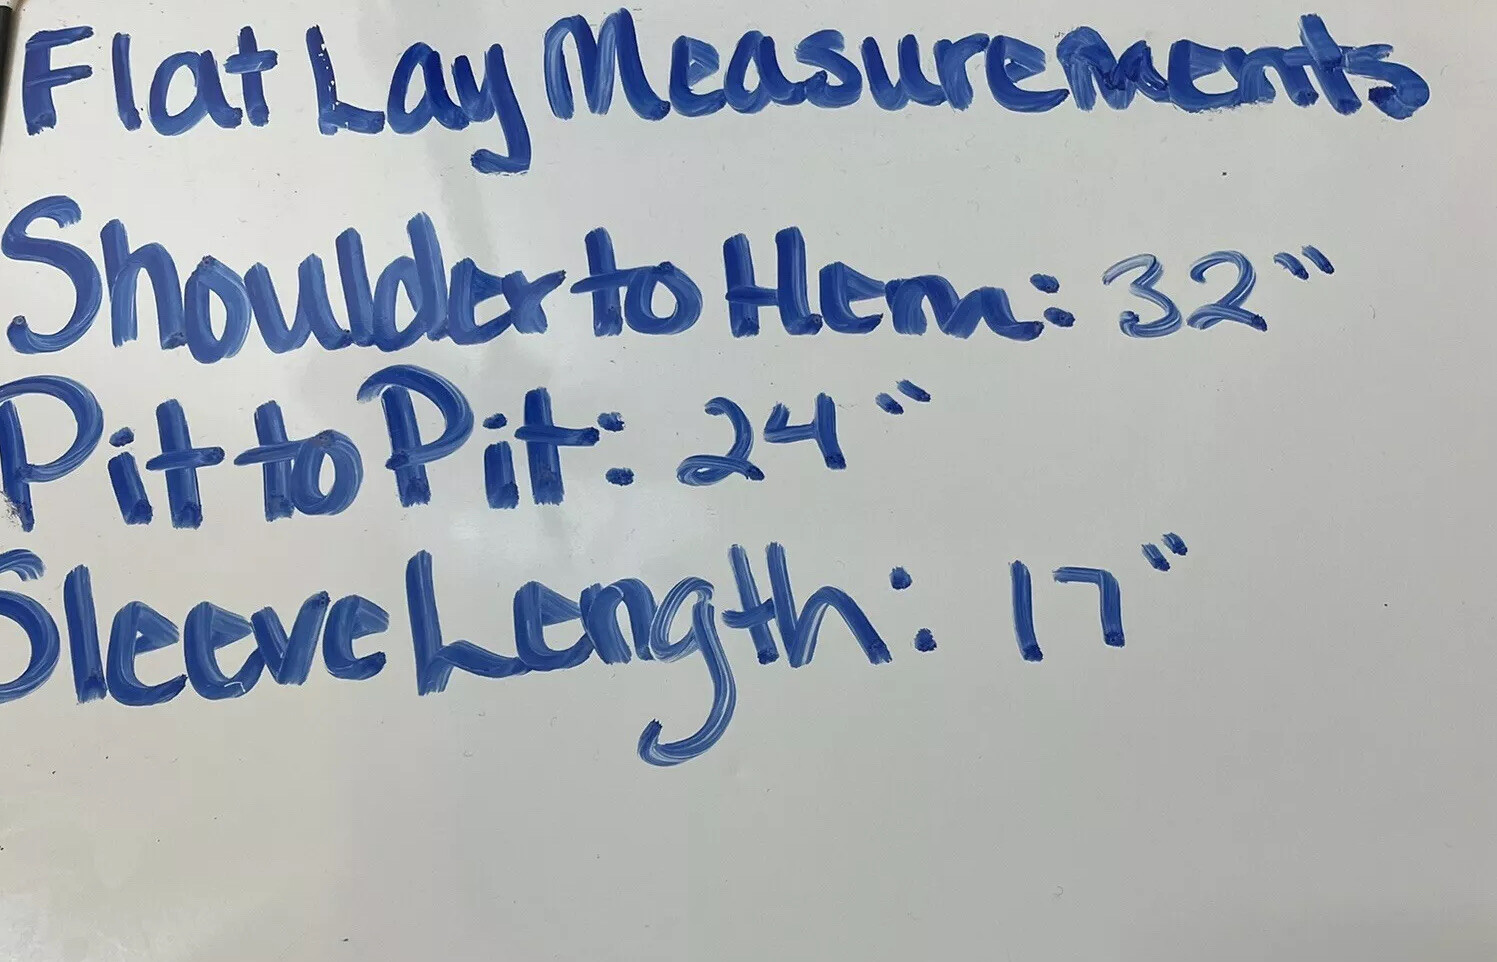 Flat Lay Measurements
Shoulder to Hem: 32"
Pit to Pit: 24"
Sleeve Length: 17"